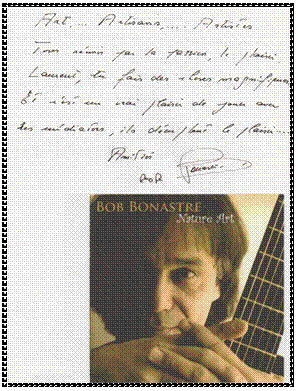 Art... Artisans,... Artistes
Tous réunis par la passion, le plaisir
Laurent, tu fais des choses magnifiques
Et c'est un vrai plaisir de jouer avec
tes médiators, ils décuplent le plaisir...
Amitiés
BOB
BOB BONASTRE
Nature Art